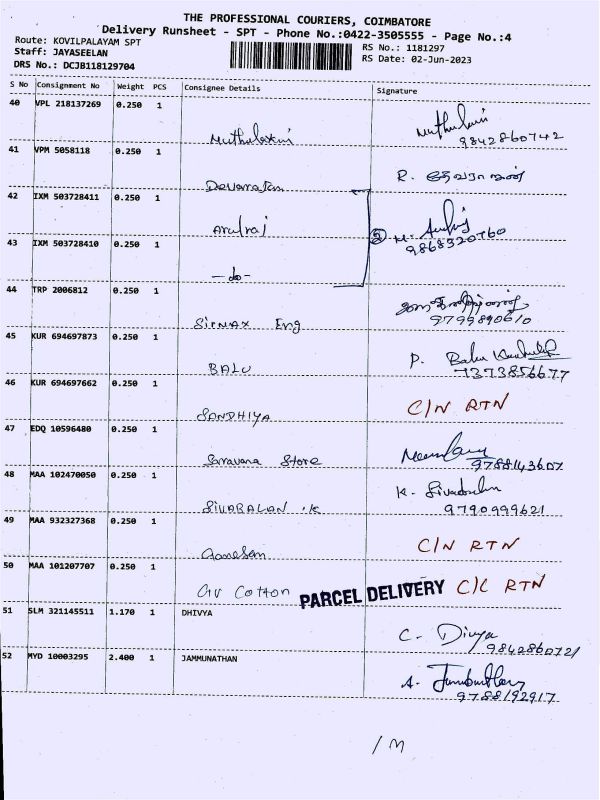 THE PROFESSIONAL COURIERS, COIMBATORE
Delivery Runsheet - SPT - Phone No.:0422-3505555 - Page No.:4
Route: KOVILPALAYAM SPT
Staff: JAYASEELAN
DRS No.: DCJB118129704
RS No.: 1181297
RS Date: 02-Jun-2023
S No Consignment No Weight PCS Consignee Details Signature
40 VPL 218137269 0.250 1
Muthulaxmi
9842860742
41 VPM 5058118 0.250 1
Devarajan
R. தேவராஜன்
42 IXM 503728411 0.250 1
Arulraj
9868320760
43 IXM 503728410 0.250 1
-do-
44 TRP 2006812 0.250 1
Sirmax Eng
9799890610
45 KUR 694697873 0.250 1
BALU
P.
7373856677
46 KUR 694697662 0.250 1
SANDHIYA
C/N RTN
47 EDQ 10596480 0.250 1
Saravana Store
9788143607
48 MAA 102470050 0.250 1
SIVABALAN .K
K.
9790999621
49 MAA 932327368 0.250 1
Ganesan
C/N RTN
50 MAA 101207707 0.250 1
Cotton
PARCEL DELIVERY C/C RTN
51 SLM 321145511 1.170 1 DHIVYA
C. Divya
9842860721
52 MYD 10003295 2.400 1 JAMMUNATHAN
A.
9788192917